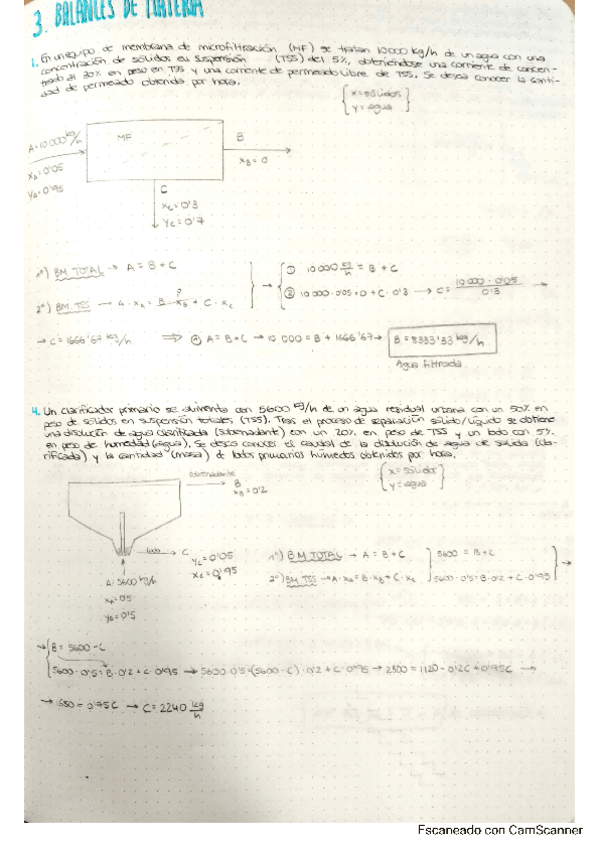 3. BALANCES DE MATERIA
1. En un equipo de membrana de microfiltración (MF) se tratan 10000 kg/h de un agua con una
concentración de sólidos en suspensión (TSS) del 5%, obteniéndose una corriente de concen-
trado al 30% en peso en TSS y una corriente de permeado libre de TSS. Se desea conocer la canti-
dad de permeado obtenida por hora.
{x = sólidos
y = agua}
A = 10 000 kg/h
MF
B
xA = 0'05
xB = 0
yA = 0'95
C
xC = 0'3
yC = 0'7
1º) BM TOTAL → A = B + C
① 10000 kg/h = B + C
2º) BM TSS → A · xA = B · xB + C · xC
② 10 000 · 0'05 = 0 + C · 0'3 → C = 10 000 · 0'05 / 0'3 →
→ C = 1666'67 kg/h ⇒ ① A = B + C → 10 000 = B + 1666'67 → B = 8333'33 kg/h
Agua filtrada
4. Un clarificador primario se alimenta con 5600 kg/h de un agua residual urbana con un 50% en
peso de sólidos en suspensión totales (TSS). Tras el proceso de separación sólido/líquido se obtiene
una disolución de agua clarificada (sobrenadante) con un 20% en peso de TSS y un lodo con 5%
en peso de humedad (agua). Se desea conocer el caudal de la disolución de agua de salida (cla-
rificada) y la cantidad (masa) de lodos primarios húmedos obtenidos por hora.
{x = sólidos
y = agua}
sobrenadante
B
xB = 0'2
lodo C
yC = 0'05
xC = 0'95
A = 5600 kg/h
xA = 0'5
yA = 0'5
1º) BM TOTAL → A = B + C
5600 = B + C
2º) BM TSS → A · xA = B · xB + C · xC
5600 · 0'5 = B · 0'2 + C · 0'95 →
→ B = 5600 - C
5600 · 0'5 = B · 0'2 + C · 0'95 → 5600 · 0'5 = (5600 - C) · 0'2 + C · 0'95 → 2800 = 1120 - 0'2C + 0'95C →
→ 1680 = 0'75C → C = 2240 kg/h
Escaneado con CamScanner